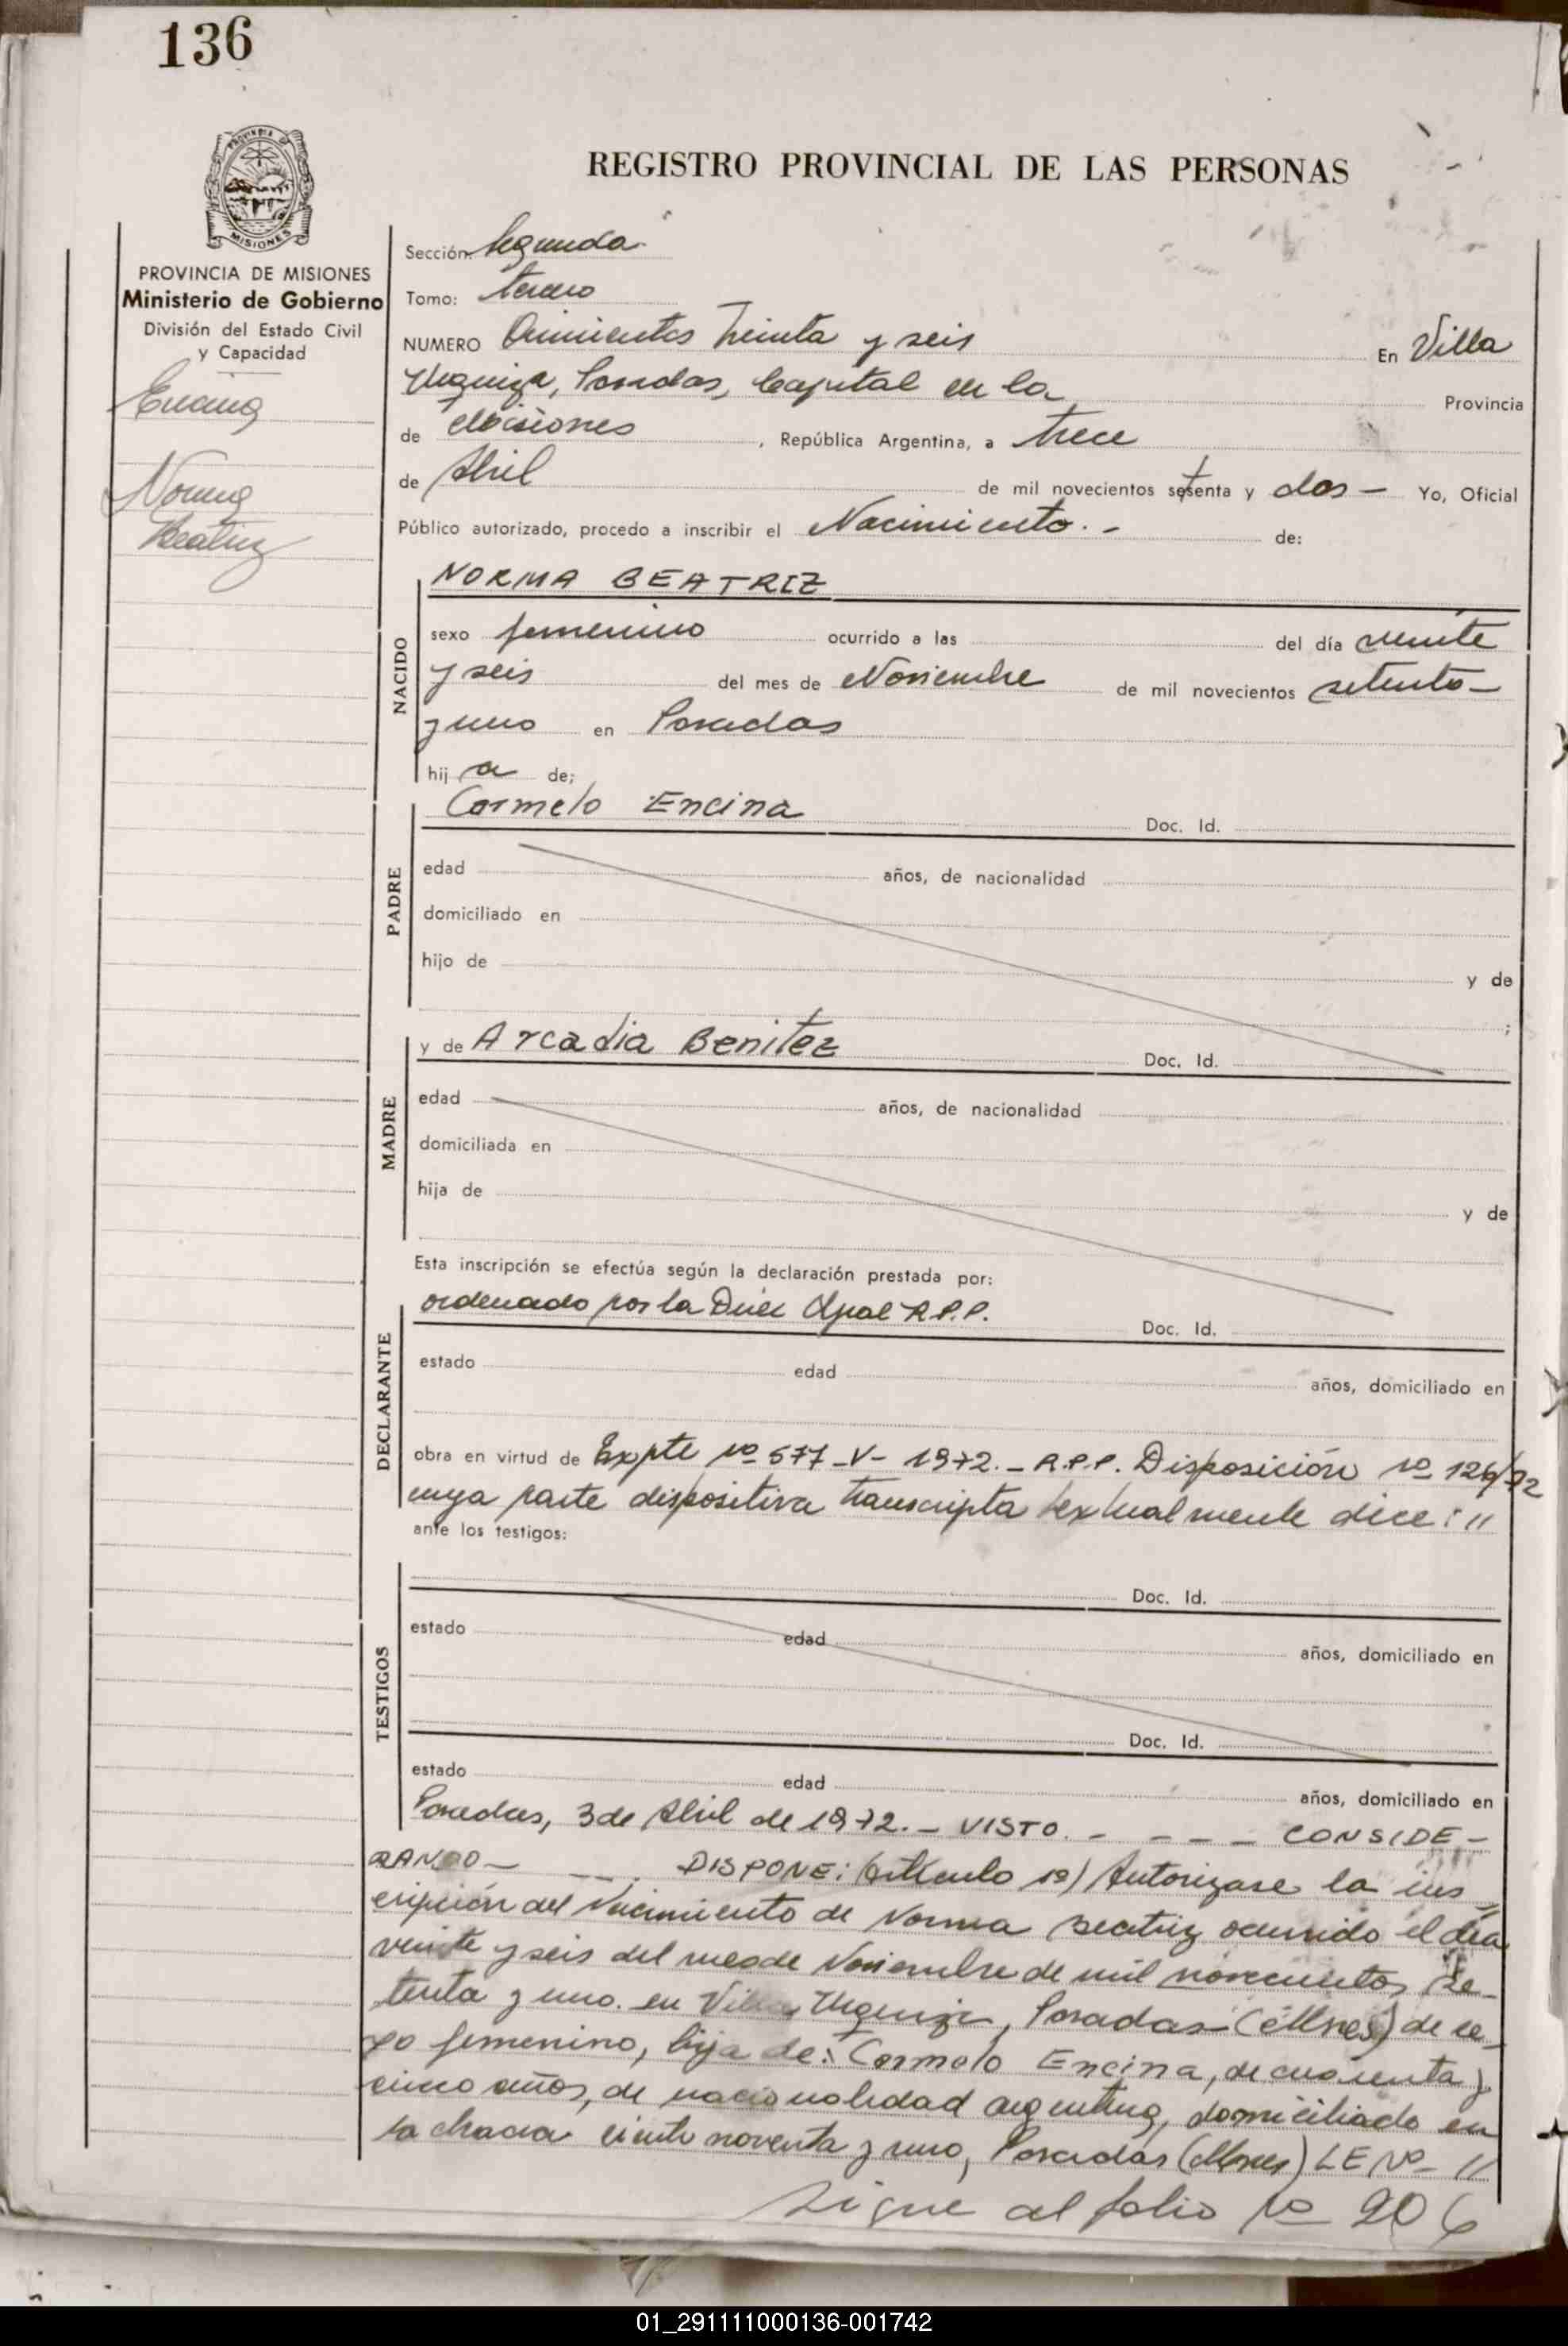 136
REGISTRO PROVINCIAL DE LAS PERSONAS
PROVINCIA DE
MISIONES
PROVINCIA DE MISIONES
Ministerio de Gobierno
División del Estado Civil
y Capacidad
Encina
Norma
Beatriz
Sección: Segunda
Tomo: tercero
NUMERO Quinientos treinta y seis En Villa
Urquiza, Posadas, Capital en la Provincia
de Misiones, República Argentina, a trece
de Abril de mil novecientos setenta y dos - Yo, Oficial
Público autorizado, procedo a inscribir el Nacimiento.- de:
NACIDO
NORMA BEATRIZ
sexo femenino ocurrido a las del día veinte
y seis del mes de Noviembre de mil novecientos setenta -
y uno en Posadas
hij a de;
PADRE
Carmelo Encina Doc. Id.
edad años, de nacionalidad
domiciliado en
hijo de y de
;
MADRE
y de Arcadia Benitez Doc. Id.
edad años, de nacionalidad
domiciliada en
hija de y de
Esta inscripción se efectúa según la declaración prestada por:
DECLARANTE
ordenado por la Direc R.P.P. Doc. Id.
estado edad años, domiciliado en
obra en virtud de Expte nº 577-V- 1972.- R.P.P. Disposición nº 126/72
cuya parte dispositiva transcripta textualmente dice: "
ante los testigos:
TESTIGOS
Doc. Id.
estado edad años, domiciliado en
Doc. Id.
estado edad años, domiciliado en
Posadas, 3 de Abril de 1972.- VISTO. - - - - CONSIDE-
RANDO- - - - DISPONE: Artículo 1º) Autorizase la ins
cripción del Nacimiento de Norma Beatriz ocurrido el día
veinte y seis del mes de Noviembre de mil novecientos se-
tenta y uno. en Villa Urquiza, Posadas (Mnes) de se-
xo femenino, hija de: Carmelo Encina, de cuarenta y
cinco años, de nacionalidad argentina, domiciliado en
la chacra ciento noventa y uno, Posadas (Mnes) LE Nº- //
Sigue al folio nº 206
01_291111000136-001742